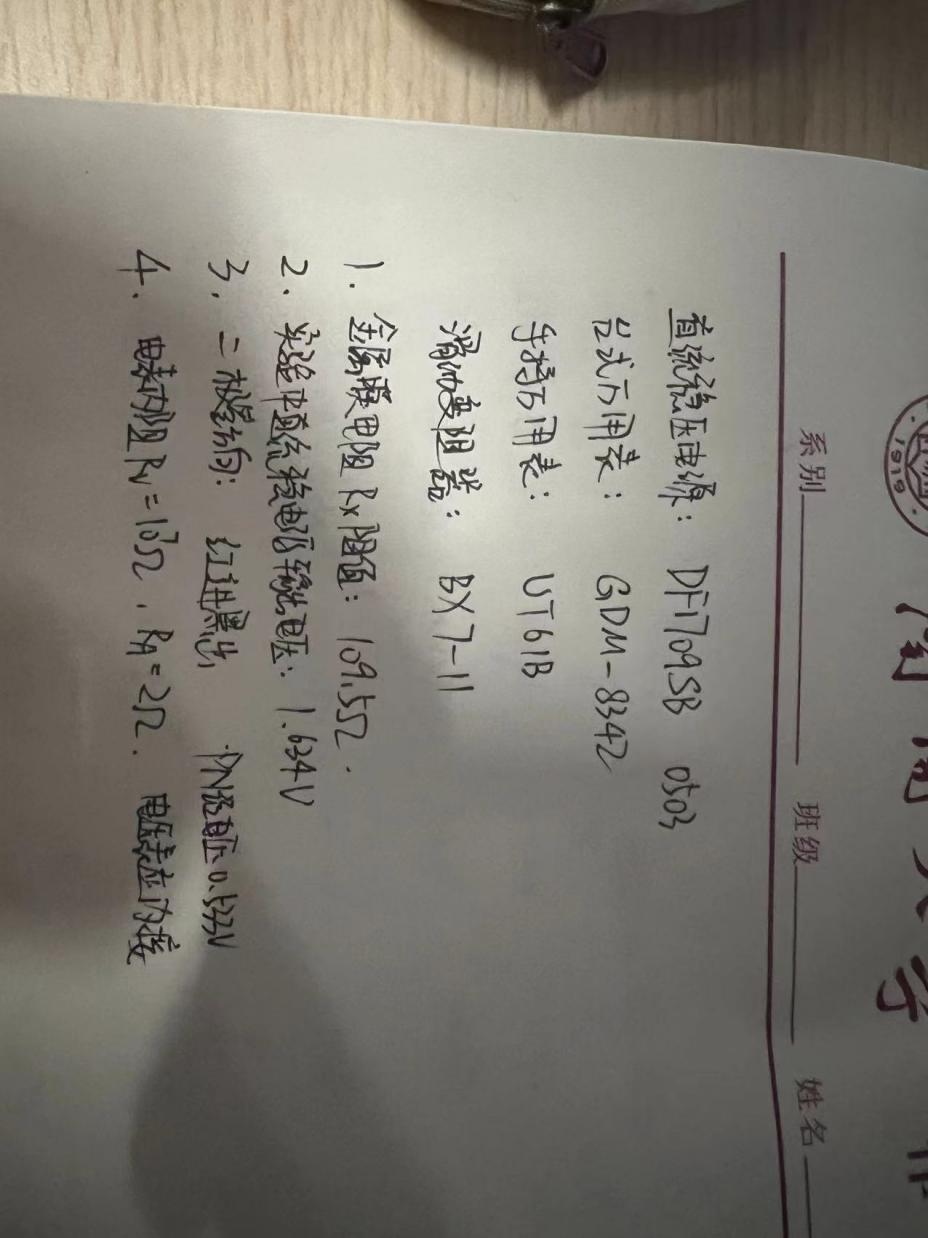 1919
南开大学
系别 班级 姓名
直流稳压电源: DF1709SB 0503
台式万用表: GDM-8342
手持万用表: UT61B
滑动变阻器: BX7-11
1. 金属膜电阻Rx阻值: 109.5Ω.
2. 实验中直流稳电源输出电压: 1.634V
3. 二极导向: 红进黑出 PN结电压0.533V
4. 电表内阻Rv=10⁷Ω, RA=2Ω. 电压表应内接